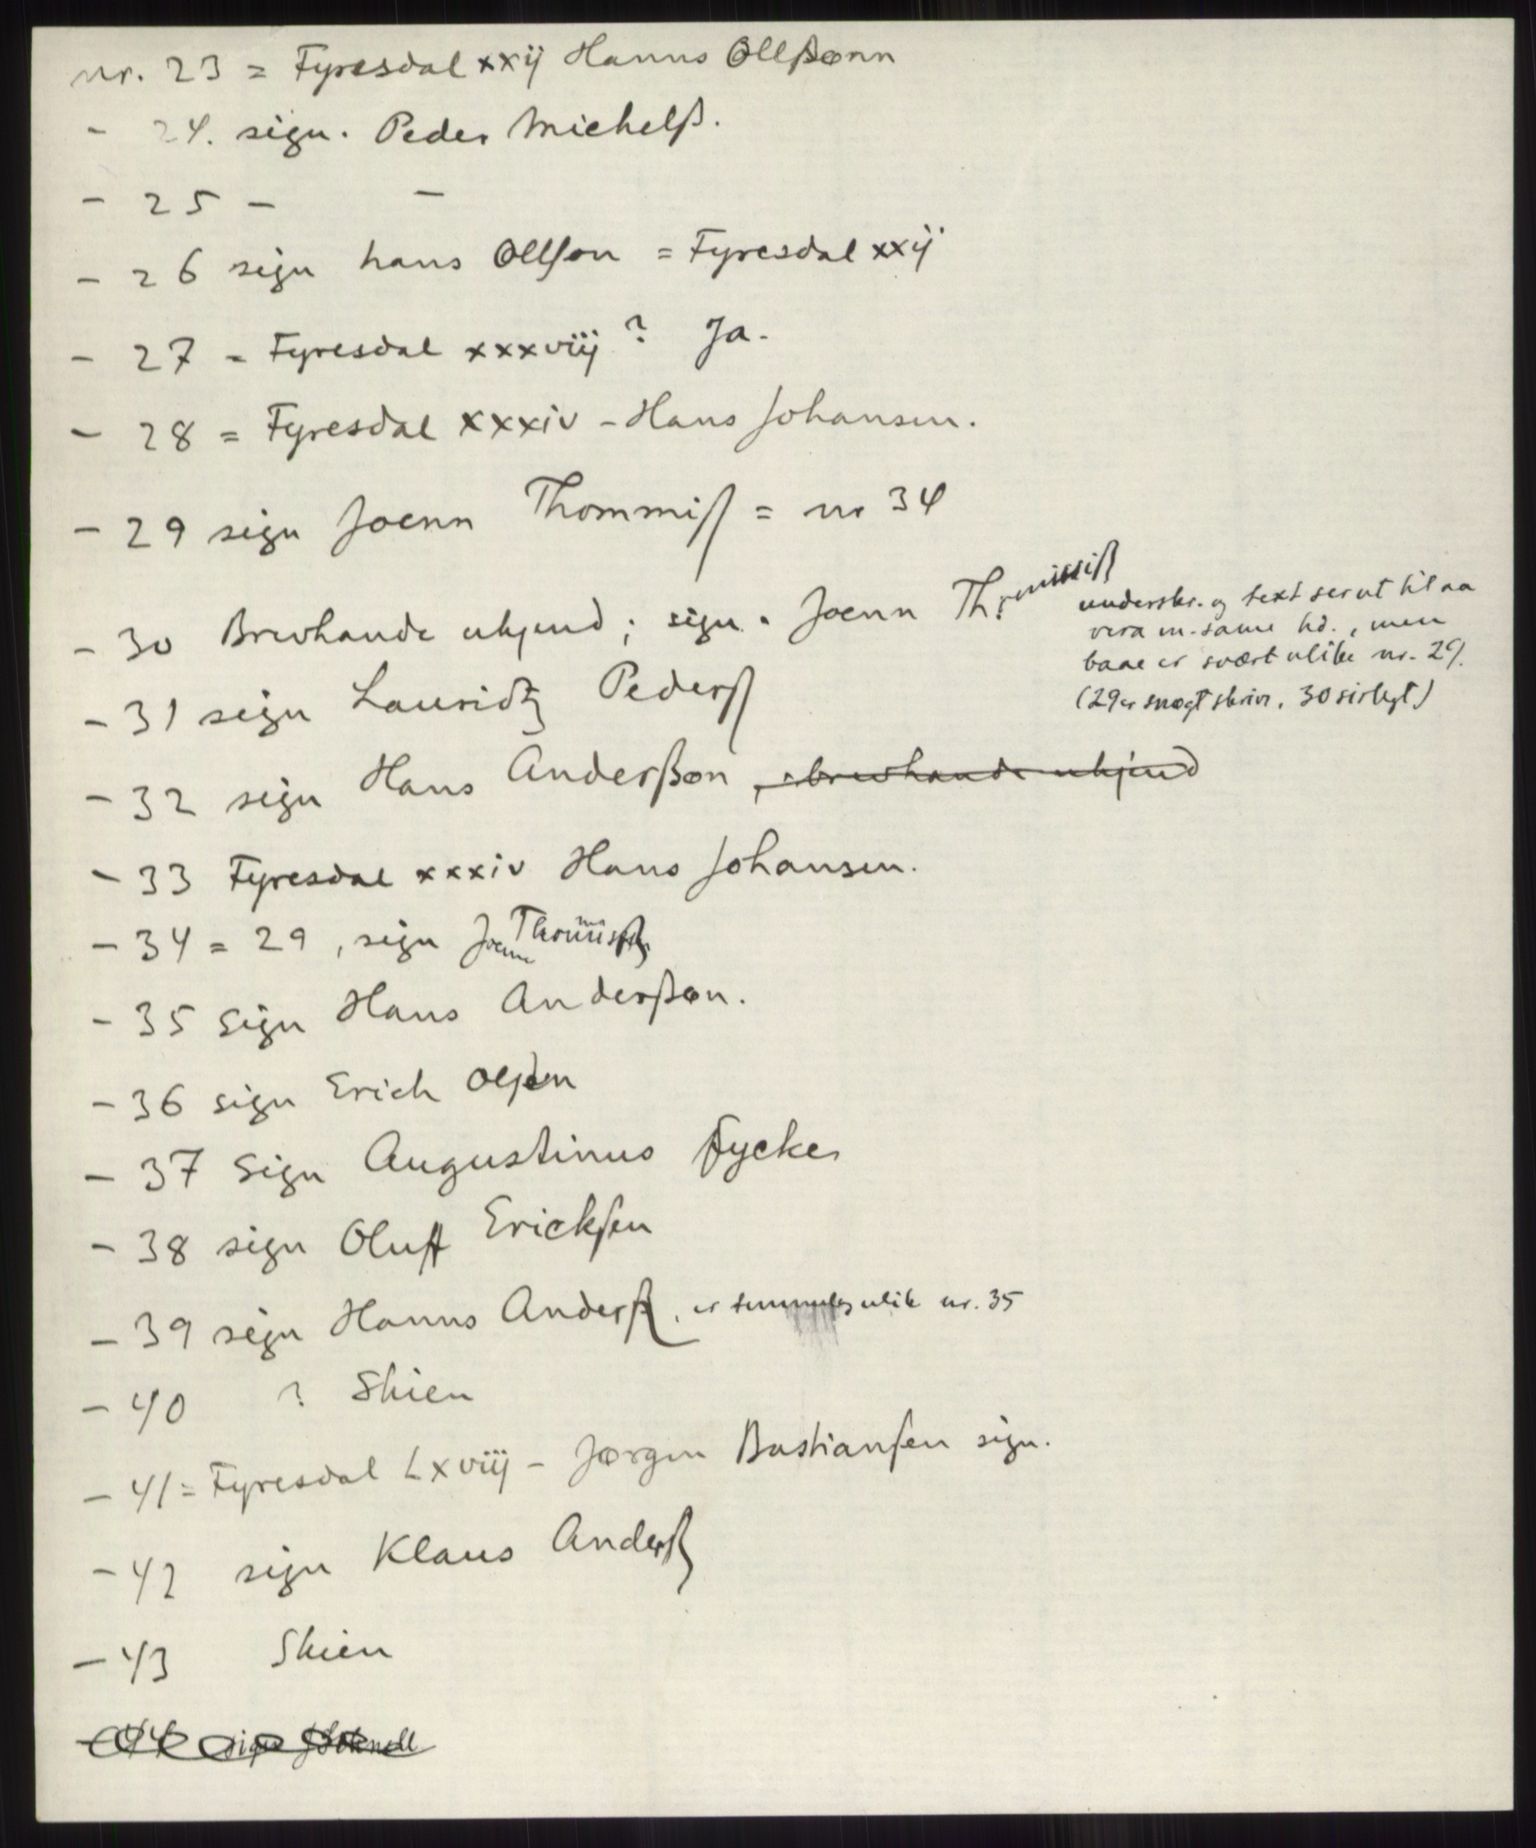 nr. 23 = Fyresdal xxij Hanns Ollßonn
- 24. sign. Peder Michelß.
- 25 - -
- 26 sign hans Ollson = Fyresdal xxij
- 27 = Fyresdal xxxviij ? Ja.
- 28 = Fyresdal xxxiv - Hans Johansen.
- 29 sign Joenn Thommiß = nr 34
- 30 Brevhande ukjend; sign. Joenn
underskr. og text ser ut til aa
vera m. same hd., men
baae er svært ulike nr. 29.
(29 er snøgt skriv, 30 sirlegt)
- 31 sign Lauridtz Pederß
- 32 sign Hans Anderßøn, brevhande ukjend
- 33 Fyresdal xxxiv Hans Johansen.
- 34 = 29, sign Joenn
- 35 Sign Hans Anderßøn.
- 36 sign Erich Olßen
- 37 Sign Augustinus Fycker
- 38 sign Oluff Ericksen
- 39 sign Hanns Anderß. er ulik nr. 35
- 40 ? Skien
- 41 = Fyresdal Lxviij - Jørgen Bastiansen sign.
- 42 sign Klaus Anderß
- 43 Skien
44 sign